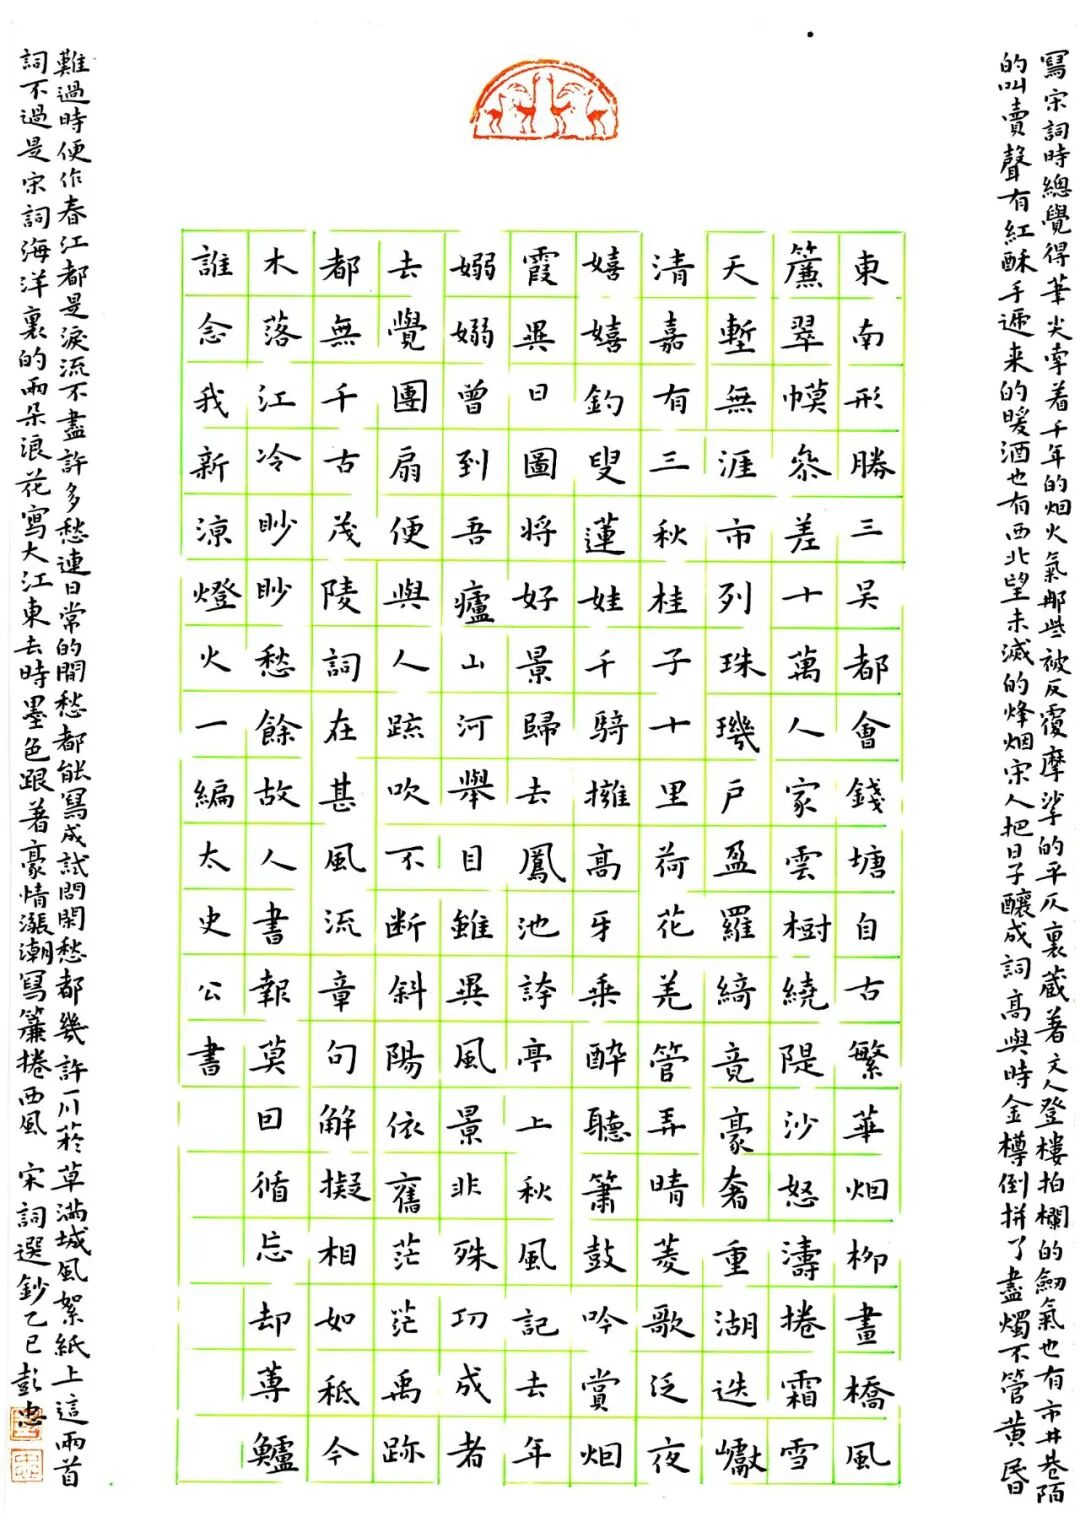 寫宋詞時總覺得筆尖牽着千年的烟火氣那些被反覆摩挲的平仄裏藏著文人登樓拍欄的劍氣也有市井巷陌
的叫賣聲有紅酥手遞来的暖酒也有西北望未滅的烽烟宋人把日子釀成詞高興時金樽倒拼了盡燭不管黄昏
東南形勝三吴都會錢塘自古繁華烟柳畫橋風
簾翠幙叅差十萬人家雲樹繞隄沙怒濤捲霜雪
天塹無涯市列珠璣戸盈羅綺竟豪奢重湖迭巘
清嘉有三秋桂子十里荷花羌管弄晴菱歌泛夜
嬉嬉釣叟蓮娃千騎擁高牙乘醉聽簫鼓吟賞烟
霞異日圖将好景歸去鳳池誇亭上秋風記去年
嫋嫋曾到吾廬山河舉目雖異風景非殊功成者
去覺團扇便與人踈吹不断斜陽依舊茫茫禹跡
都無千古茂陵詞在甚風流章句解擬相如秪今
木落江冷眇眇愁餘故人書報莫因循忘却蓴鱸
誰念我新涼燈火一編太史公書
難過時便作春江都是淚流不盡許多愁連日常的閒愁都能寫成試問閑愁都幾許一川菸草滿城風絮紙上這兩首
詞不過是宋詞海洋裏的兩朵浪花寫大江東去時墨色跟著豪情漲潮寫簾捲西風 宋詞選鈔乙巳彭忠